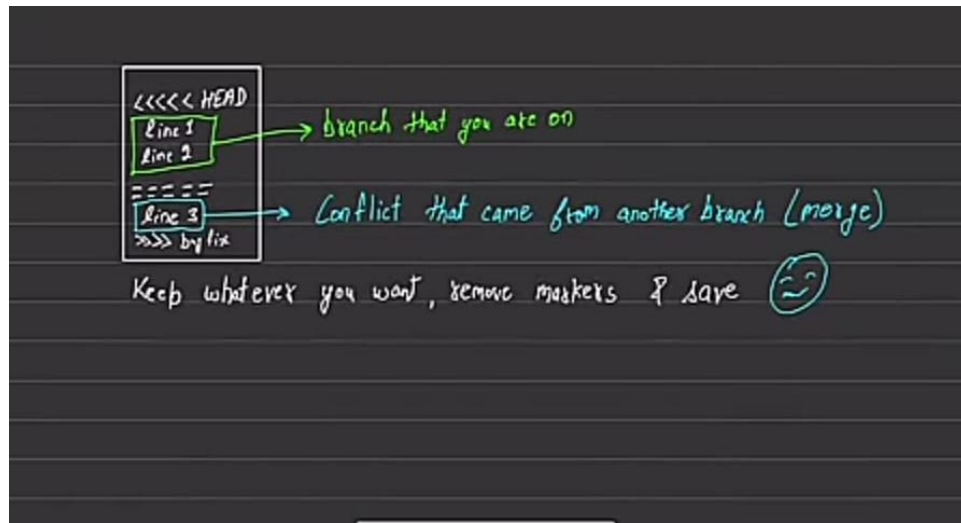 <<<<< HEAD
line 1
line 2
branch that you are on
=====
line 3
Conflict that came from another branch (merge)
>>>> bugfix
Keep whatever you want, remove markers & save